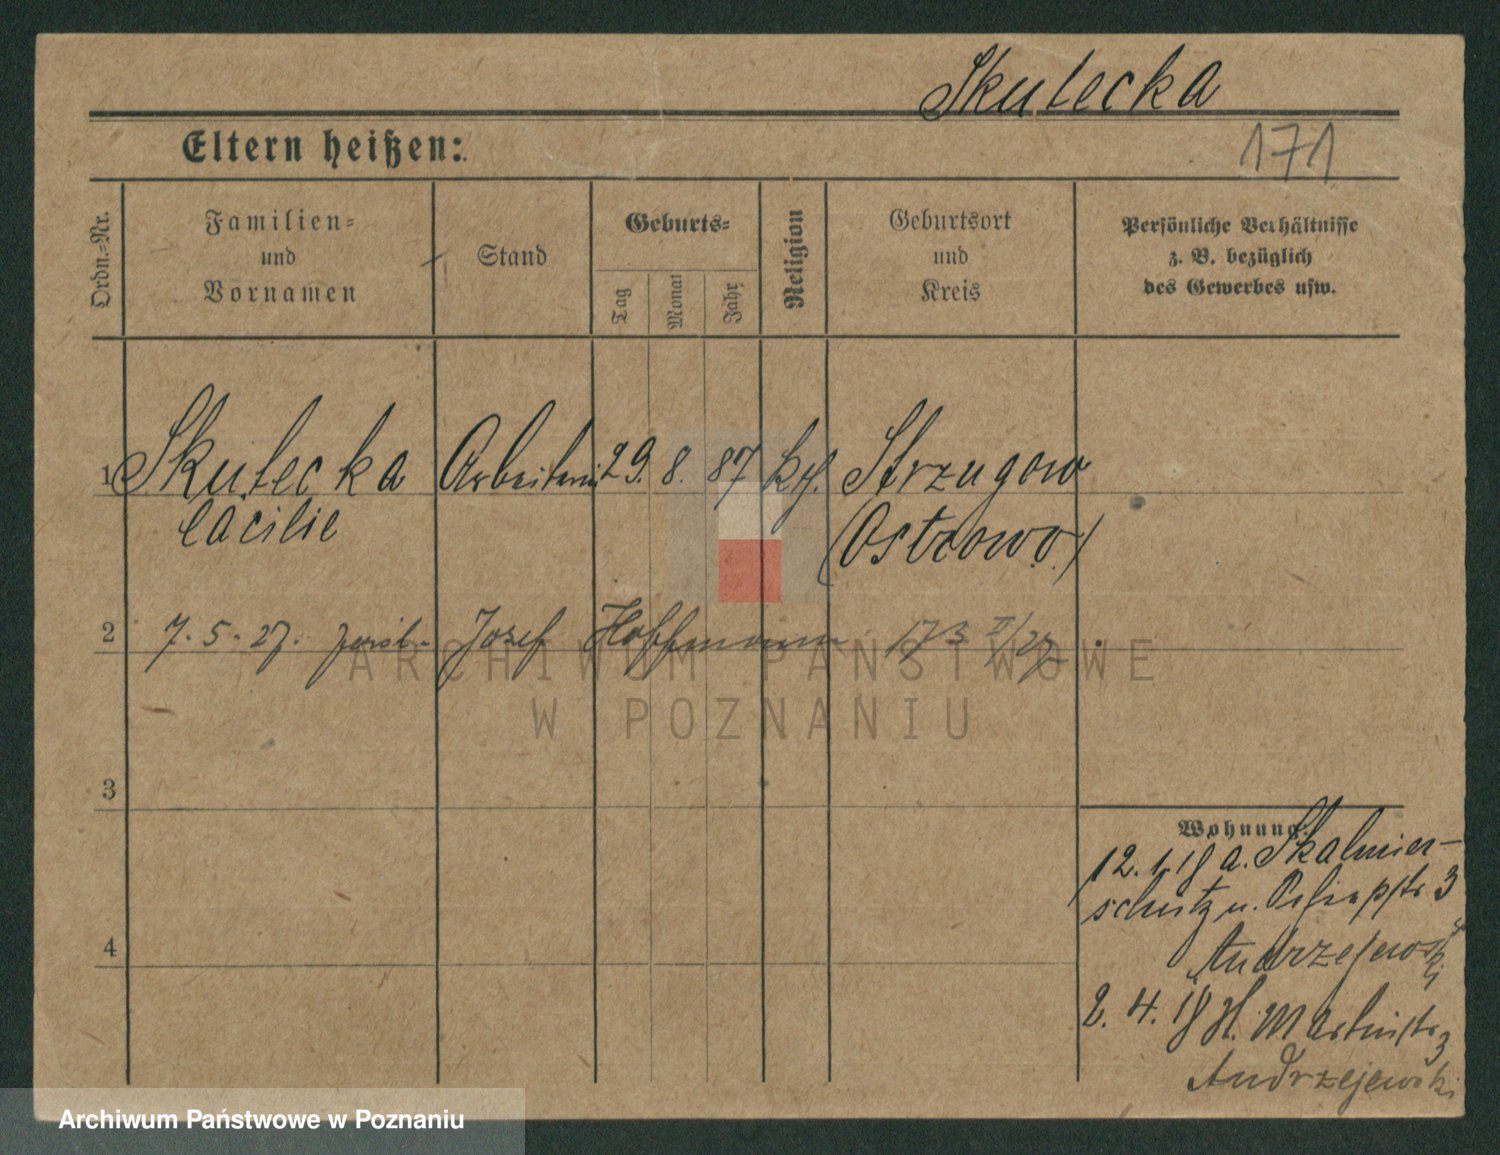 Skutecka
Eltern heißen:
171
Ordn.-Nr.
Familien-
und
Vornamen
Stand
Geburts-
Tag
Monat
Jahr
Religion
Geburtsort
und
Kreis
Persönliche Verhältnisse
z. B. bezüglich
des Gewerbes usw.
1 Skutecka Arbeiterin 29. 8. 87 kth. Strzugow
Cäcilie (Ostrowo.)
2 7. 5. 27. Josef Hoffmann 173 II/27.
ARCHIWUM PAŃSTWOWE
W POZNANIU
3
Wohnung:
12. 1. 18 a. Skalmier-
schütz n. 3
Andrzejewski
4
2. 4. 18 H. Martinstr 3
Andrzejewski
Archiwum Państwowe w Poznaniu